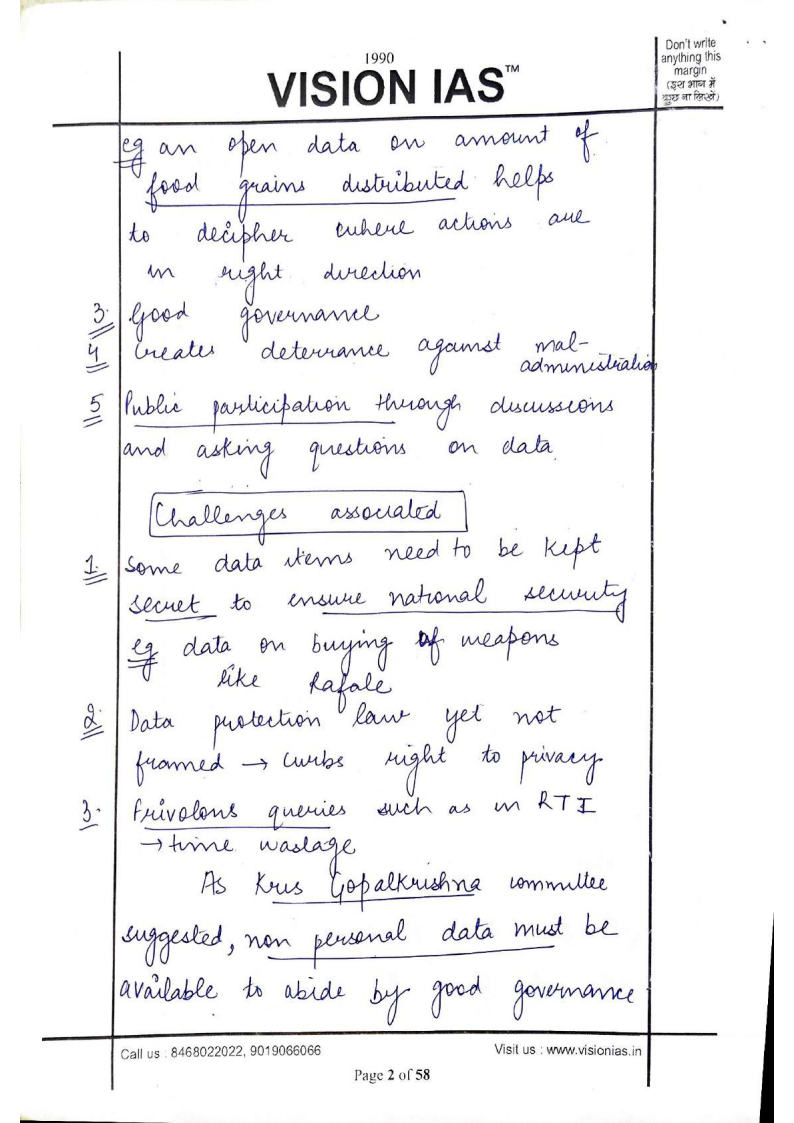 1990
VISION IAS™
Don't write
anything this
margin
(इस भाग में
कुछ ना लिखें)
eg an open data on amount of
food grains distributed helps
to decipher where actions are
in right direction
3. Good governance
4 Creates deterrance against mal-
administration
5 Public participation through discussions
and asking questions on data
Challenges associated
1. Some data items need to be kept
secret to ensure national security
eg data on buying of weapons
like Rafale
2. Data protection law yet not
framed → curbs right to privacy
3. Frivolous queries such as in RTI
→ time wastage
As Kris Gopalkrishna committee
suggested, non personal data must be
available to abide by good governance
Call us : 8468022022, 9019066066
Visit us : www.visionias.in
Page 2 of 58